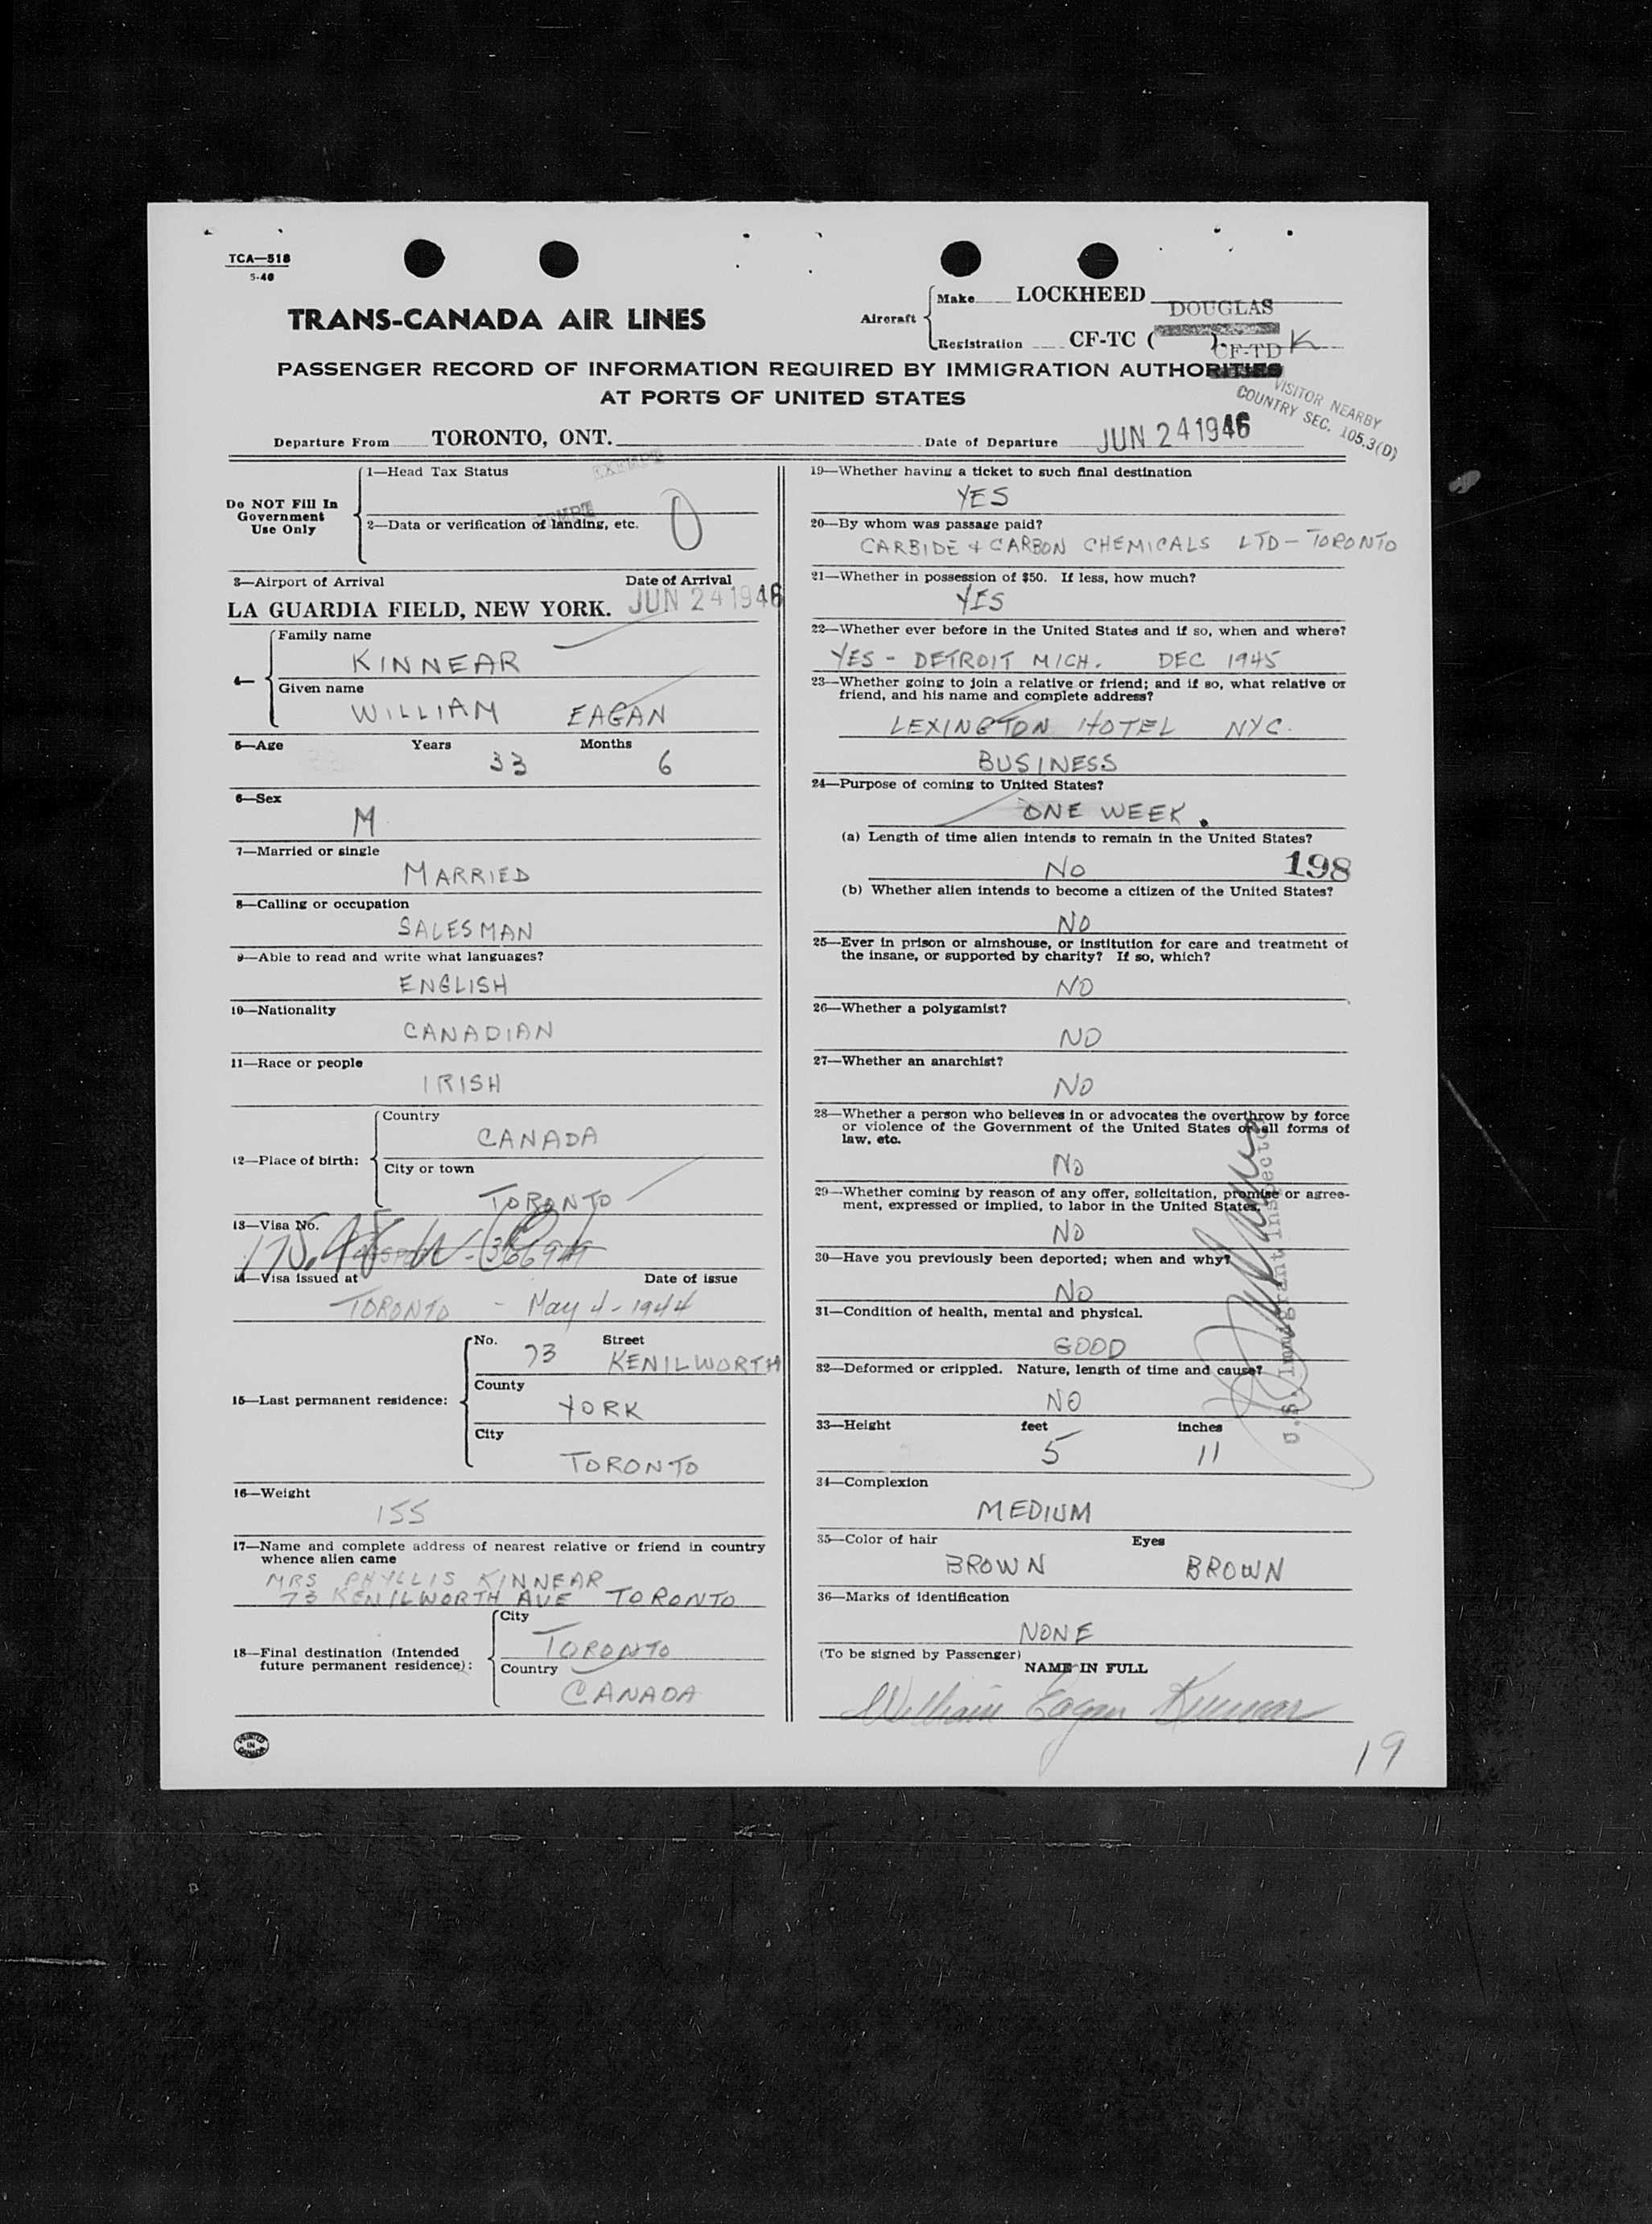 TCA—518
5-46
TRANS-CANADA AIR LINES
Aircraft
Make LOCKHEED DOUGLAS
Registration CF-TC ( ). CF-TD K
PASSENGER RECORD OF INFORMATION REQUIRED BY IMMIGRATION AUTHORITIES
AT PORTS OF UNITED STATES
VISITOR NEARBY
COUNTRY SEC. 105.3(D)
Departure From TORONTO, ONT. Date of Departure JUN 24 1946
Do NOT Fill In
Government
Use Only
1—Head Tax Status EXEMPT
2—Data or verification of landing, etc. 0
3—Airport of Arrival Date of Arrival
LA GUARDIA FIELD, NEW YORK. JUN 24 1946
4—
Family name
KINNEAR
Given name
WILLIAM EAGAN
5—Age Years Months
33 6
6—Sex
M
7—Married or single
MARRIED
8—Calling or occupation
SALESMAN
9—Able to read and write what languages?
ENGLISH
10—Nationality
CANADIAN
11—Race or people
IRISH
12—Place of birth:
Country
CANADA
City or town
TORONTO
13—Visa No.
14—Visa issued at Date of issue
TORONTO - May 4 - 1944
15—Last permanent residence:
No. Street
73 KENILWORTH
County
YORK
City
TORONTO
16—Weight
155
17—Name and complete address of nearest relative or friend in country
whence alien came
MRS PHYLLIS KINNEAR
73 KENILWORTH AVE TORONTO
18—Final destination (Intended
future permanent residence):
City
TORONTO
Country
CANADA
PRINTED
IN
CANADA
19—Whether having a ticket to such final destination
YES
20—By whom was passage paid?
CARBIDE & CARBON CHEMICALS LTD - TORONTO
21—Whether in possession of $50. If less, how much?
YES
22—Whether ever before in the United States and if so, when and where?
YES - DETROIT MICH. DEC 1945
23—Whether going to join a relative or friend; and if so, what relative or
friend, and his name and complete address?
LEXINGTON HOTEL NYC.
BUSINESS
24—Purpose of coming to United States?
ONE WEEK.
(a) Length of time alien intends to remain in the United States?
NO 198
(b) Whether alien intends to become a citizen of the United States?
NO
25—Ever in prison or almshouse, or institution for care and treatment of
the insane, or supported by charity? If so, which?
NO
26—Whether a polygamist?
NO
27—Whether an anarchist?
NO
28—Whether a person who believes in or advocates the overthrow by force
or violence of the Government of the United States or all forms of
law, etc.
NO
29—Whether coming by reason of any offer, solicitation, promise or agree-
ment, expressed or implied, to labor in the United States.
NO
30—Have you previously been deported; when and why?
NO
31—Condition of health, mental and physical.
GOOD
32—Deformed or crippled. Nature, length of time and cause?
NO
U.S. Immigrant Inspector
33—Height feet inches
5 11
34—Complexion
MEDIUM
35—Color of hair Eyes
BROWN BROWN
36—Marks of identification
NONE
(To be signed by Passenger)
NAME IN FULL
William Eagan Kinnear
19